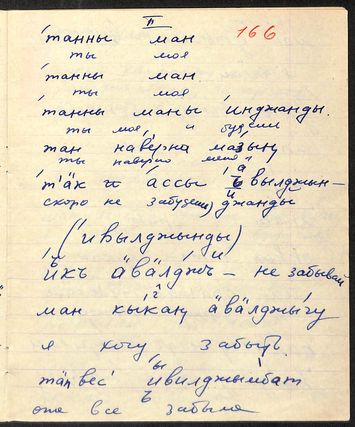 II
166
'танны ман
ты моя
'танны ман.
ты моя
'танны маны 'инджанды.
ты моя, и будешь
тан наве́рна маз'ың
ты наверно меня
'т'äк а́ссы вылджын—
скоро не забудешь) джанды
('ивылджынды)
äвäлджъ — не забывай
ман кы́каң äвäлджы́гу
я хочу забыть.
тäп вес' ивилджымбат
она все забыла